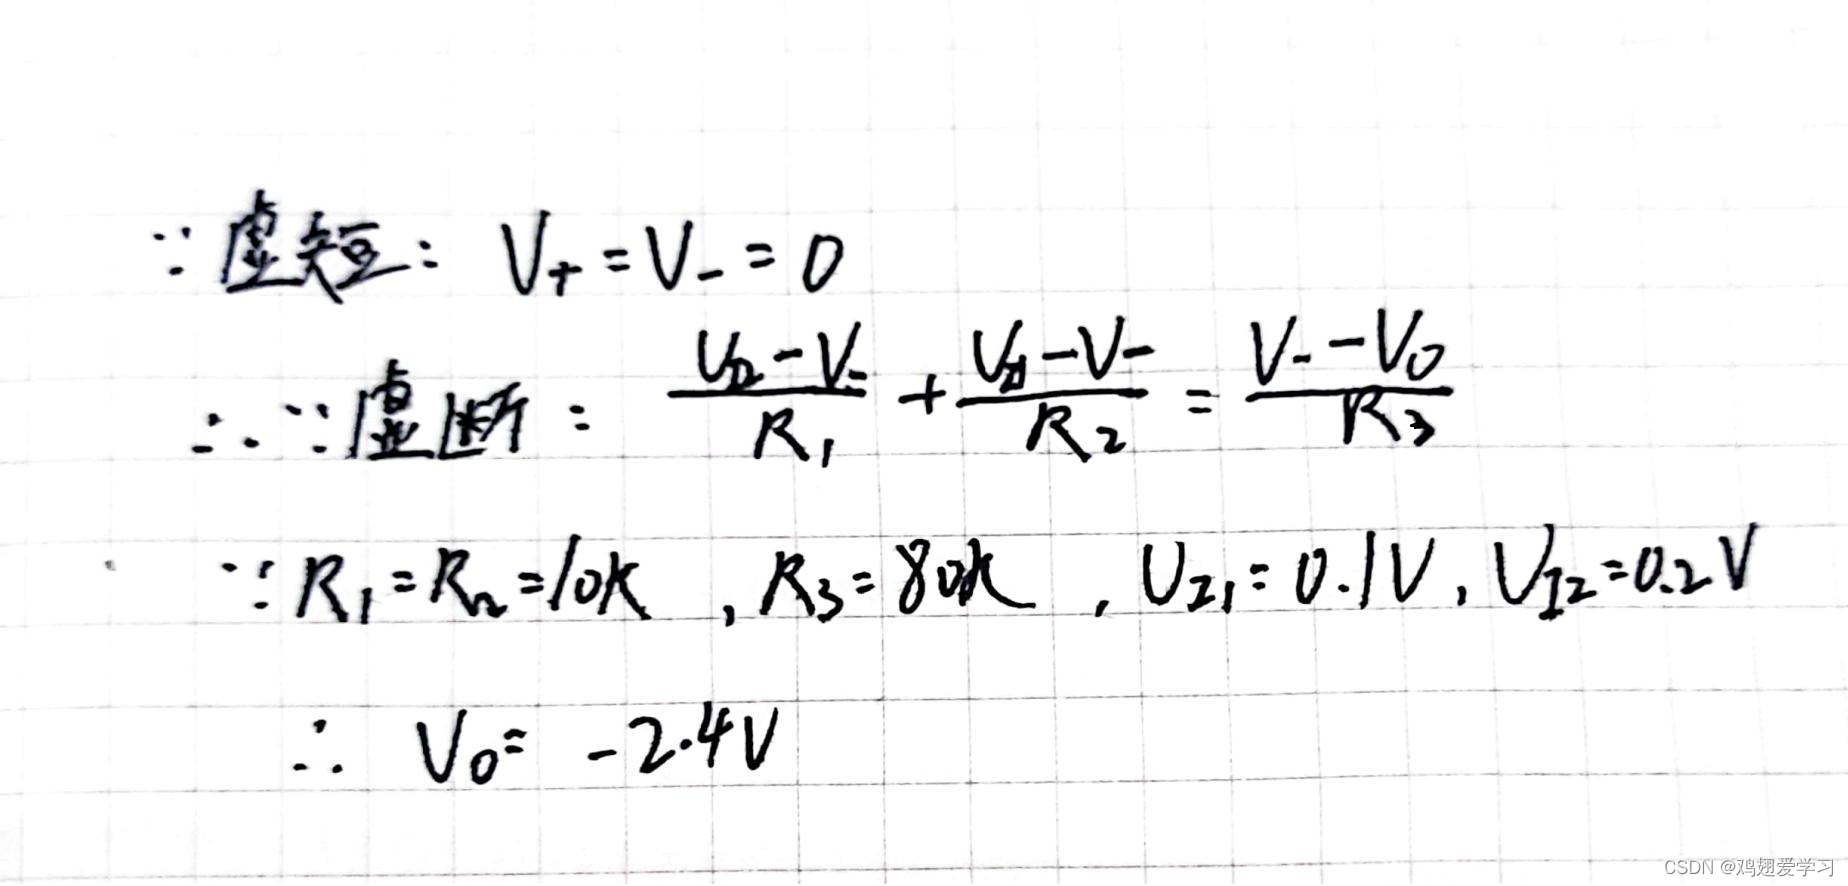 ∵虚短: V+ = V- = 0
∴ ∵虚断: (UI2 - V-)/R1 + (UI1 - V-)/R2 = (V- - VO)/R3
∵ R1 = R2 = 10K , R3 = 80K , UI1 = 0.1V , UI2 = 0.2V
∴ VO = -2.4V
CSDN @鸡翅爱学习